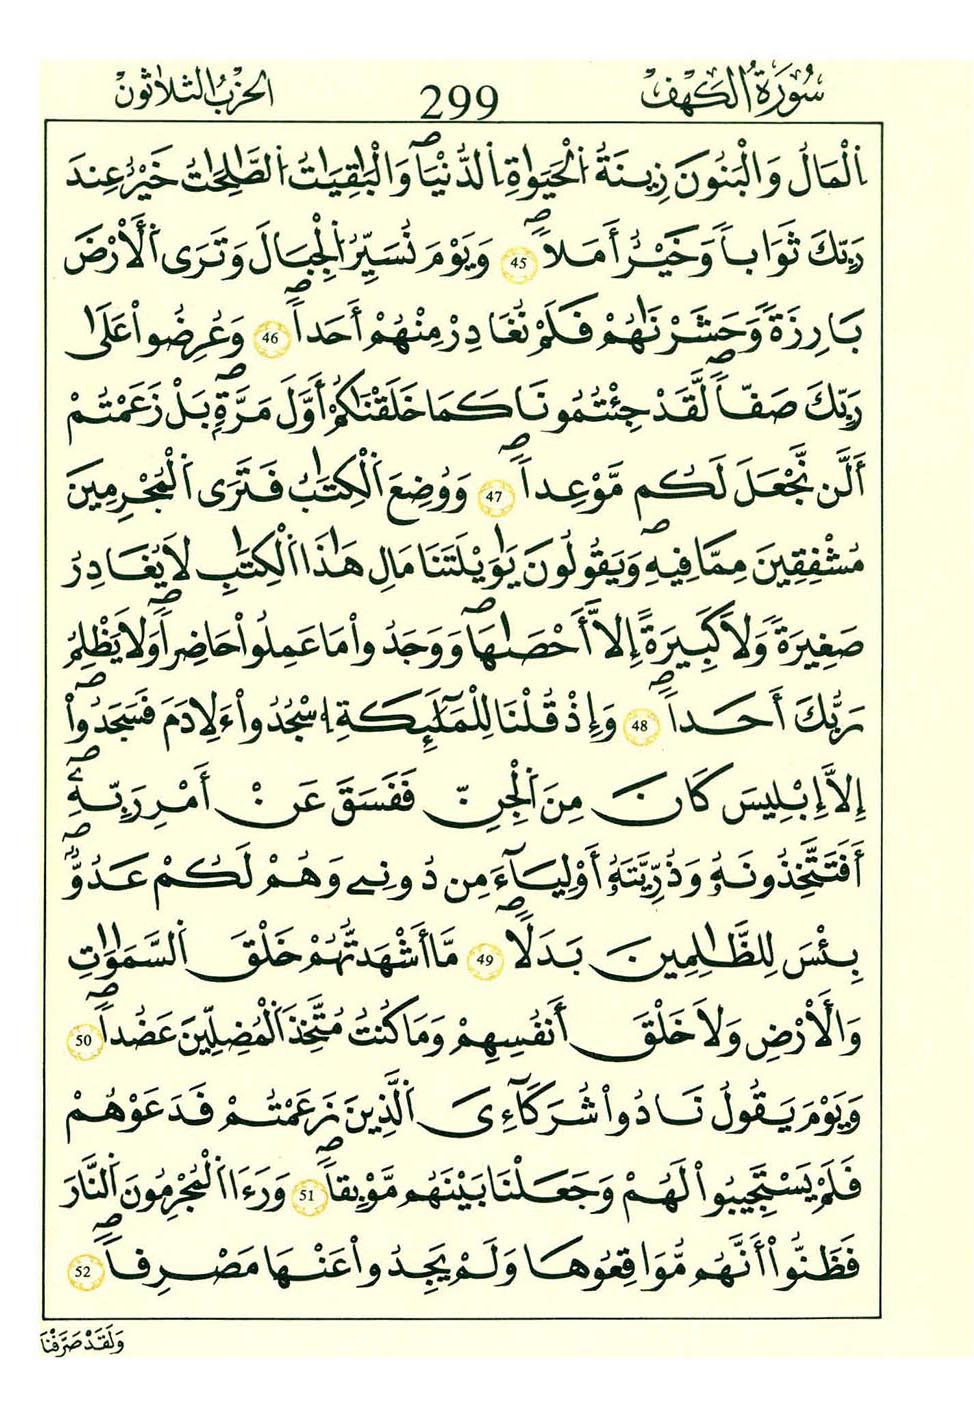 سُورَةُ الْكَهْفِ 299 الحِزْبُ الثَّلَاثُونَ
اَ۬لْمَالُ وَالْبَنُونَ زِينَةُ اُ۬لْحَيَوٰةِ اِ۬لدُّنْيَاۖ وَالْبَٰقِيَٰتُ اُ۬لصَّٰلِحَٰتُ خَيْرٌ عِندَ
رَبِّكَ ثَوَاباٗ وَخَيْرٌ أَمَلاٗۖ 45 وَيَوْمَ نُسَيِّرُ اُ۬لْجِبَالَ وَتَرَى اَ۬لْأَرْضَ
بَارِزَةٗ وَحَشَرْنَٰهُمْ فَلَمْ نُغَادِرْ مِنْهُمْ أَحَداٗۖ 46 وَعُرِضُواْ عَلَىٰ
رَبِّكَ صَفّاٗۖ لَّقَدْ جِئْتُمُونَا كَمَا خَلَقْنَٰكُمْ أَوَّلَ مَرَّةِۢۖ بَلْ زَعَمْتُمْ
أَلَّن نَّجْعَلَ لَكُم مَّوْعِداٗۖ 47 وَوُضِعَ اَ۬لْكِتَٰبُ فَتَرَى اَ۬لْمُجْرِمِينَ
مُشْفِقِينَ مِمَّا فِيهِۖ وَيَقُولُونَ يَٰوَيْلَتَنَا مَالِ هَٰذَا اَ۬لْكِتَٰبِ لَا يُغَادِرُ
صَغِيرَةٗ وَلَا كَبِيرَةً إِلَّا أَحْصَىٰهَاۖ وَوَجَدُواْ مَا عَمِلُواْ حَاضِراٗۖ وَلَا يَظْلِمُ
رَبُّكَ أَحَداٗۖ 48 وَإِذْ قُلْنَا لِلْمَلَٰٓئِكَةِ اِ۟سْجُدُواْ ءَلِادَمَ فَسَجَدُواْۖ
إِلَّا إِبْلِيسَ كَانَ مِنَ اَ۬لْجِنِّ فَفَسَقَ عَنْ أَمْرِ رَبِّهِۦۖ
أَفَتَتَّخِذُونَهُۥ وَذُرِّيَّتَهُۥ أَوْلِيَآءَ مِن دُونِے وَهُمْ لَكُمْ عَدُوُّۢۖ
بِئْسَ لِلظَّٰلِمِينَ بَدَلاٗۖ 49 مَّا أَشْهَدتُّهُمْ خَلْقَ اَ۬لسَّمَٰوَٰتِ
وَالْأَرْضِ وَلَا خَلْقَ أَنفُسِهِمْ وَمَا كُنتُ مُتَّخِذَ اَ۬لْمُضِلِّينَ عَضُداٗۖ 50
وَيَوْمَ يَقُولُ نَادُواْ شُرَكَآءِىَ اَ۬لَّذِينَ زَعَمْتُمْ فَدَعَوْهُمْ
فَلَمْ يَسْتَجِيبُواْ لَهُمْ وَجَعَلْنَا بَيْنَهُم مَّوْبِقاٗۖ 51 وَرَءَا اَ۬لْمُجْرِمُونَ اَ۬لنَّارَ
فَظَنُّواْ أَنَّهُم مُّوَاقِعُوهَا وَلَمْ يَجِدُواْ عَنْهَا مَصْرِفاٗۖ 52
وَلَقَدْ صَرَّفْنَا